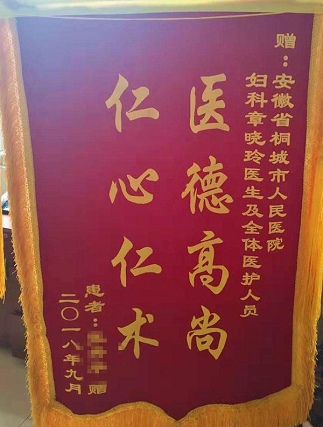 赠：安徽省桐城市人民医院
妇科章晓玲医生及全体医护人员
医德高尚
仁心仁术
患者：赠
二〇一八年九月